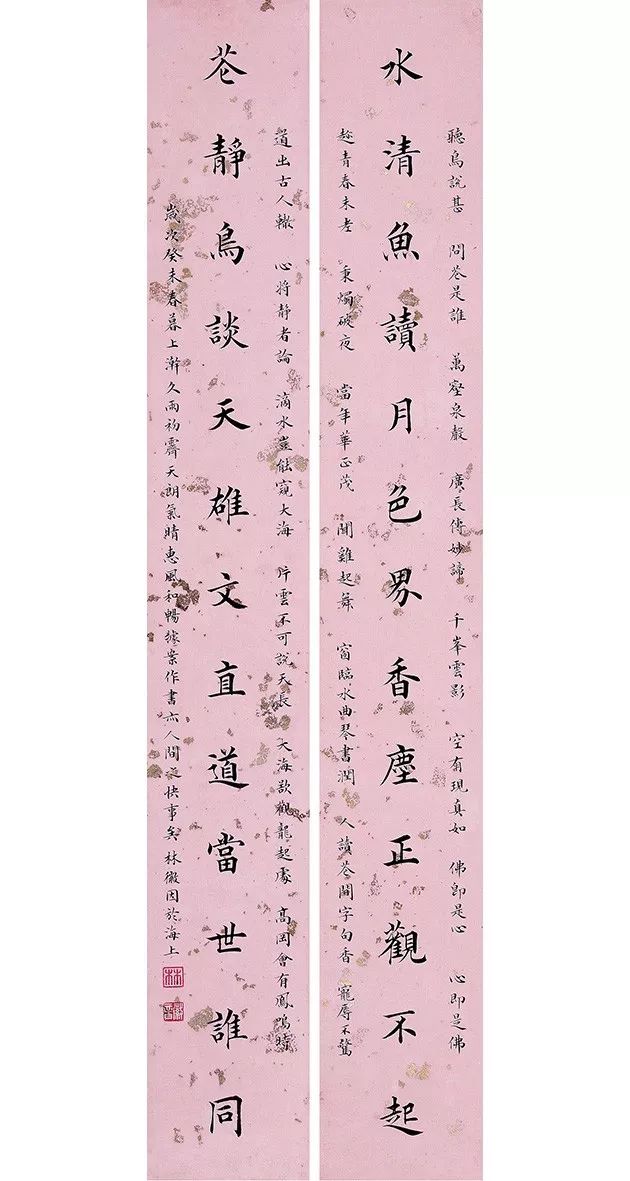 聽鳥說甚 問花是誰 萬壑泉聲 廣長傳妙諦 千峯雲影 空有現真如 佛即是心 心即是佛
水清魚讀月色界香塵正觀不起
趁青春未老 秉燭破夜 當年華正茂 聞雞起舞 窗臨水曲琴書潤 人讀花間字句香 寵辱不驚
道出古人轍 心將靜者論 滴水豈能窺大海 片雲不可說天長 大海欲觀龍起處 高岡會有鳳鳴時
花靜鳥談天雄文直道當世誰同
歲次癸未春暮上澣久雨初霽天朗氣晴惠風和暢據案作書亦人間之快事矣 林徽因於海上